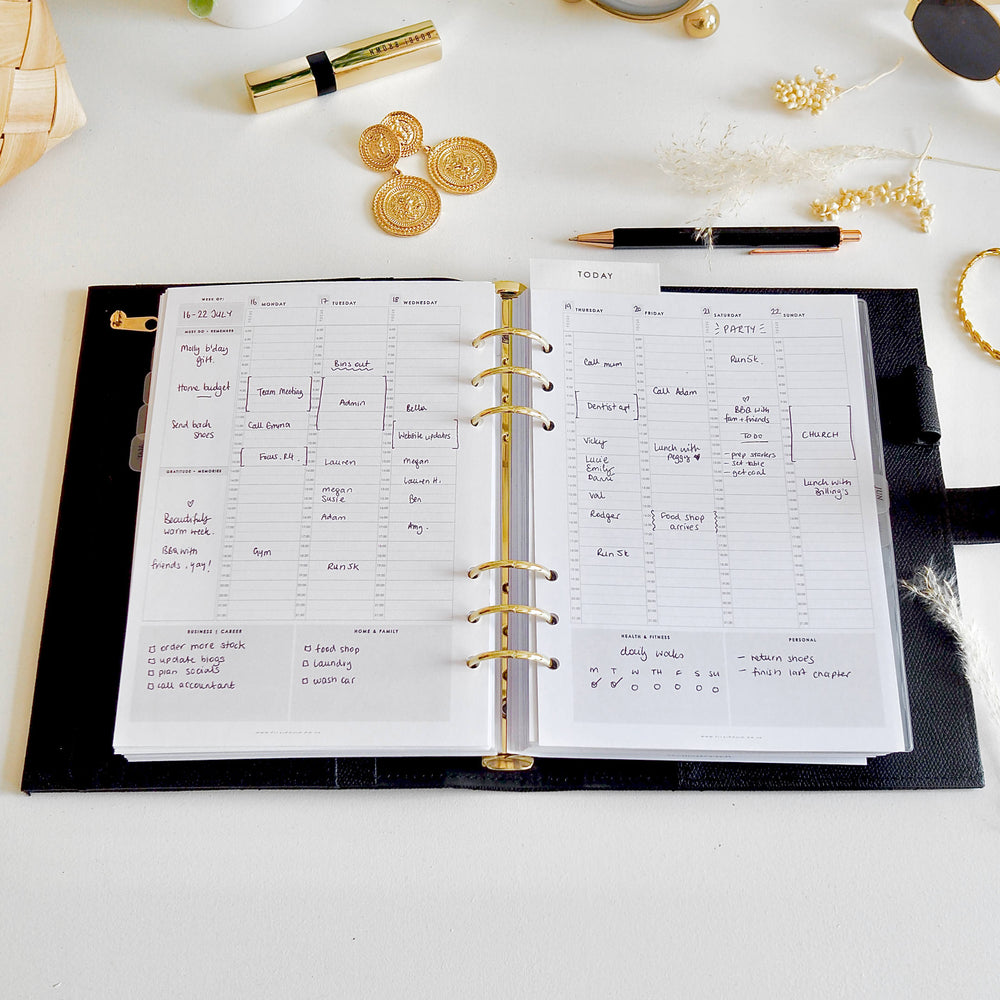 BOBBI BROWN
TODAY
WEEK OF:
16-22 JULY
MUST DO + REMEMBER
Molly b'day
gift.
Home budget
Send back
shoes
GRATITUDE + MEMORIES
Beautiful
warm week.
BBQ with
friends, yay!
16 MONDAY
Team Meeting
Call Emma
Focus. R4.
Gym
17 TUESDAY
Bins out
Admin
Lauren
megan
Susie
Adam
Run 5k
18 WEDNESDAY
Bella
Website updates
megan
Lauren H.
Ben
Amy.
BUSINESS | CAREER
order more stock
update blogs
plan socials
call accountant
HOME & FAMILY
food shop
laundry
wash car
19 THURSDAY
Call mum
Dentist apt
Vicky
Lucie
Emily
Danni
Val
Rodger
Run 5k
20 FRIDAY
Call Adam
Lunch with
Peggy
Food shop
arrives
21 SATURDAY
PARTY
Run 5k
BBQ with
fam + friends
TO DO
- prep starters
- set table
- get coal
22 SUNDAY
CHURCH
Lunch with
Billing's
HEALTH & FITNESS
daily walks
M T W TH F S SU
PERSONAL
- return shoes
- finish last chapter